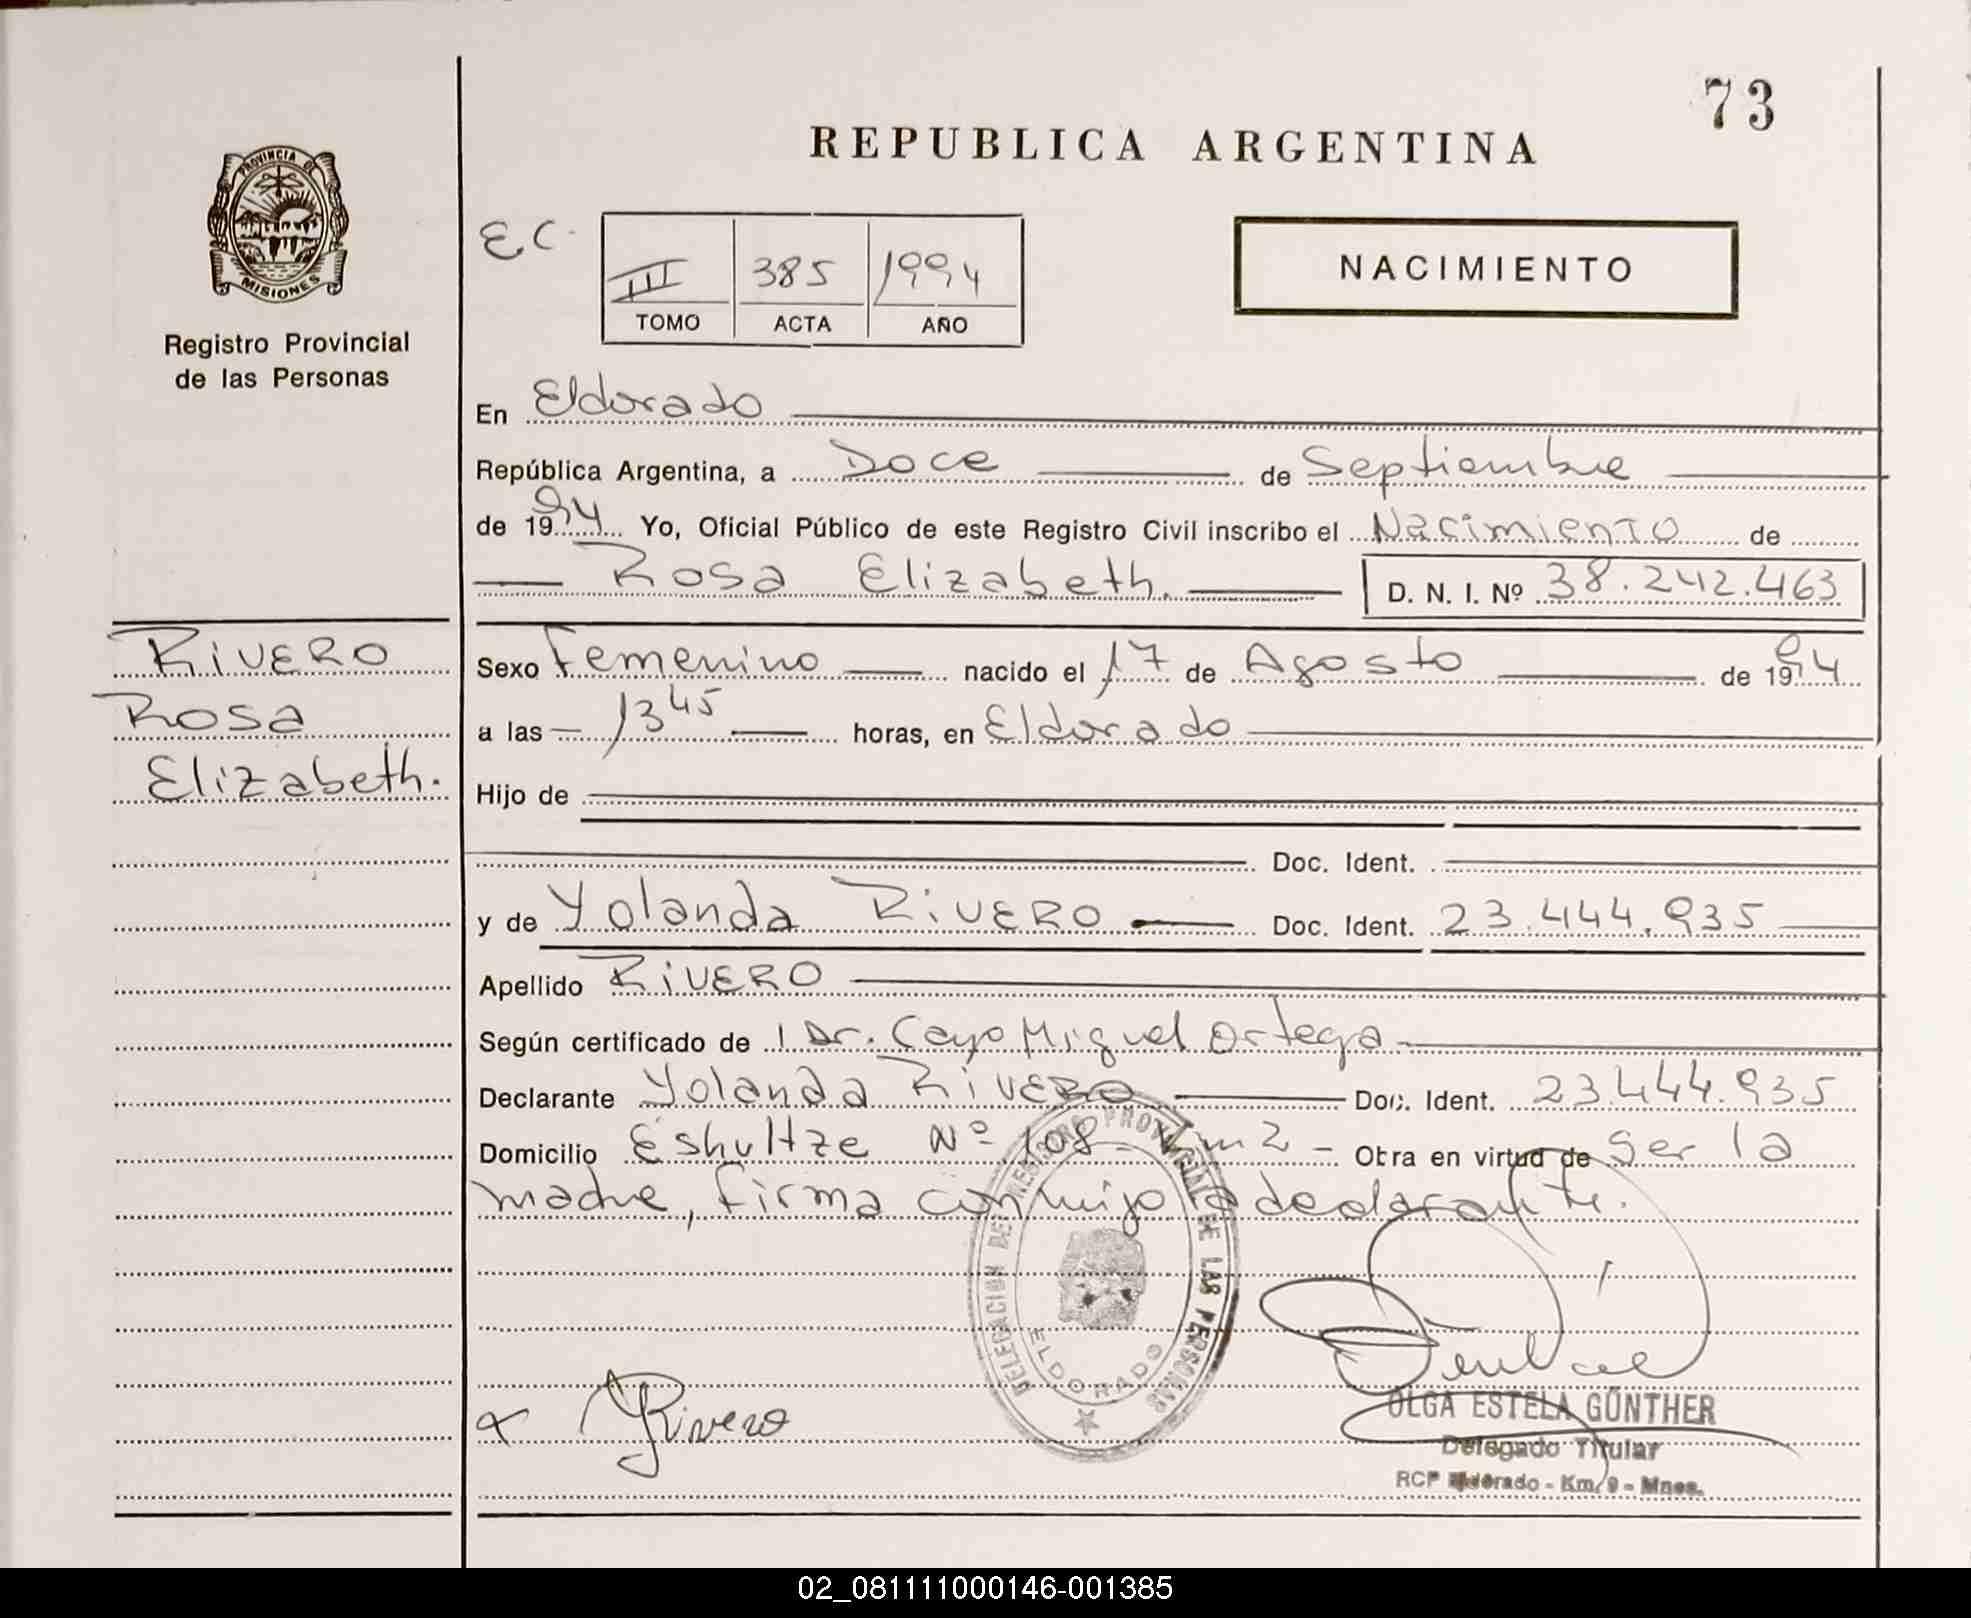 73
REPUBLICA ARGENTINA
PROVINCIA DE
MISIONES
Registro Provincial
de las Personas
EC.
III 385 1994
TOMO ACTA AÑO
NACIMIENTO
En Eldorado
República Argentina, a Doce de Septiembre
de 1994 Yo, Oficial Público de este Registro Civil inscribo el Nacimiento de
Rosa Elizabeth. D. N. I. Nº 38.242.463
RIVERO
Rosa
Elizabeth.
Sexo Femenino nacido el 17 de Agosto de 1994
a las 13 45 horas, en Eldorado
Hijo de
Doc. Ident.
y de Yolanda RIVERO Doc. Ident. 23.444.935
Apellido RIVERO
Según certificado de l Dr. Cayo Miguel Ortega
Declarante Yolanda RIVERO Doc. Ident. 23.444.935
Domicilio Eshultze Nº 108 Km 2 - Otra en virtud de Ser la
madre, firma conmigo la declarante.
DELEGACION DEL REGISTRO PROVINCIAL DE LAS PERSONAS
ELDORADO
Rivero
OLGA ESTELA GÜNTHER
Delegado Titular
RCP Eldorado - Km. 9 - Mnes.
02_081111000146-001385